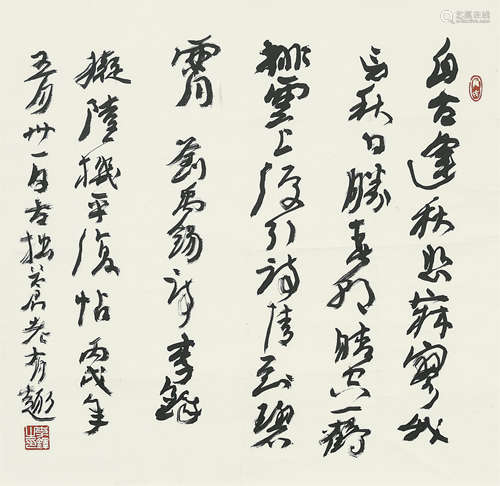 自古逢秋悲寂寥我
言秋日勝春朝晴空一鶴
排雲上便引詩情到碧
霄 劉禹錫詩 李鐸
擬陸機平復帖 丙戌年
五月卅一日古拙老有趣